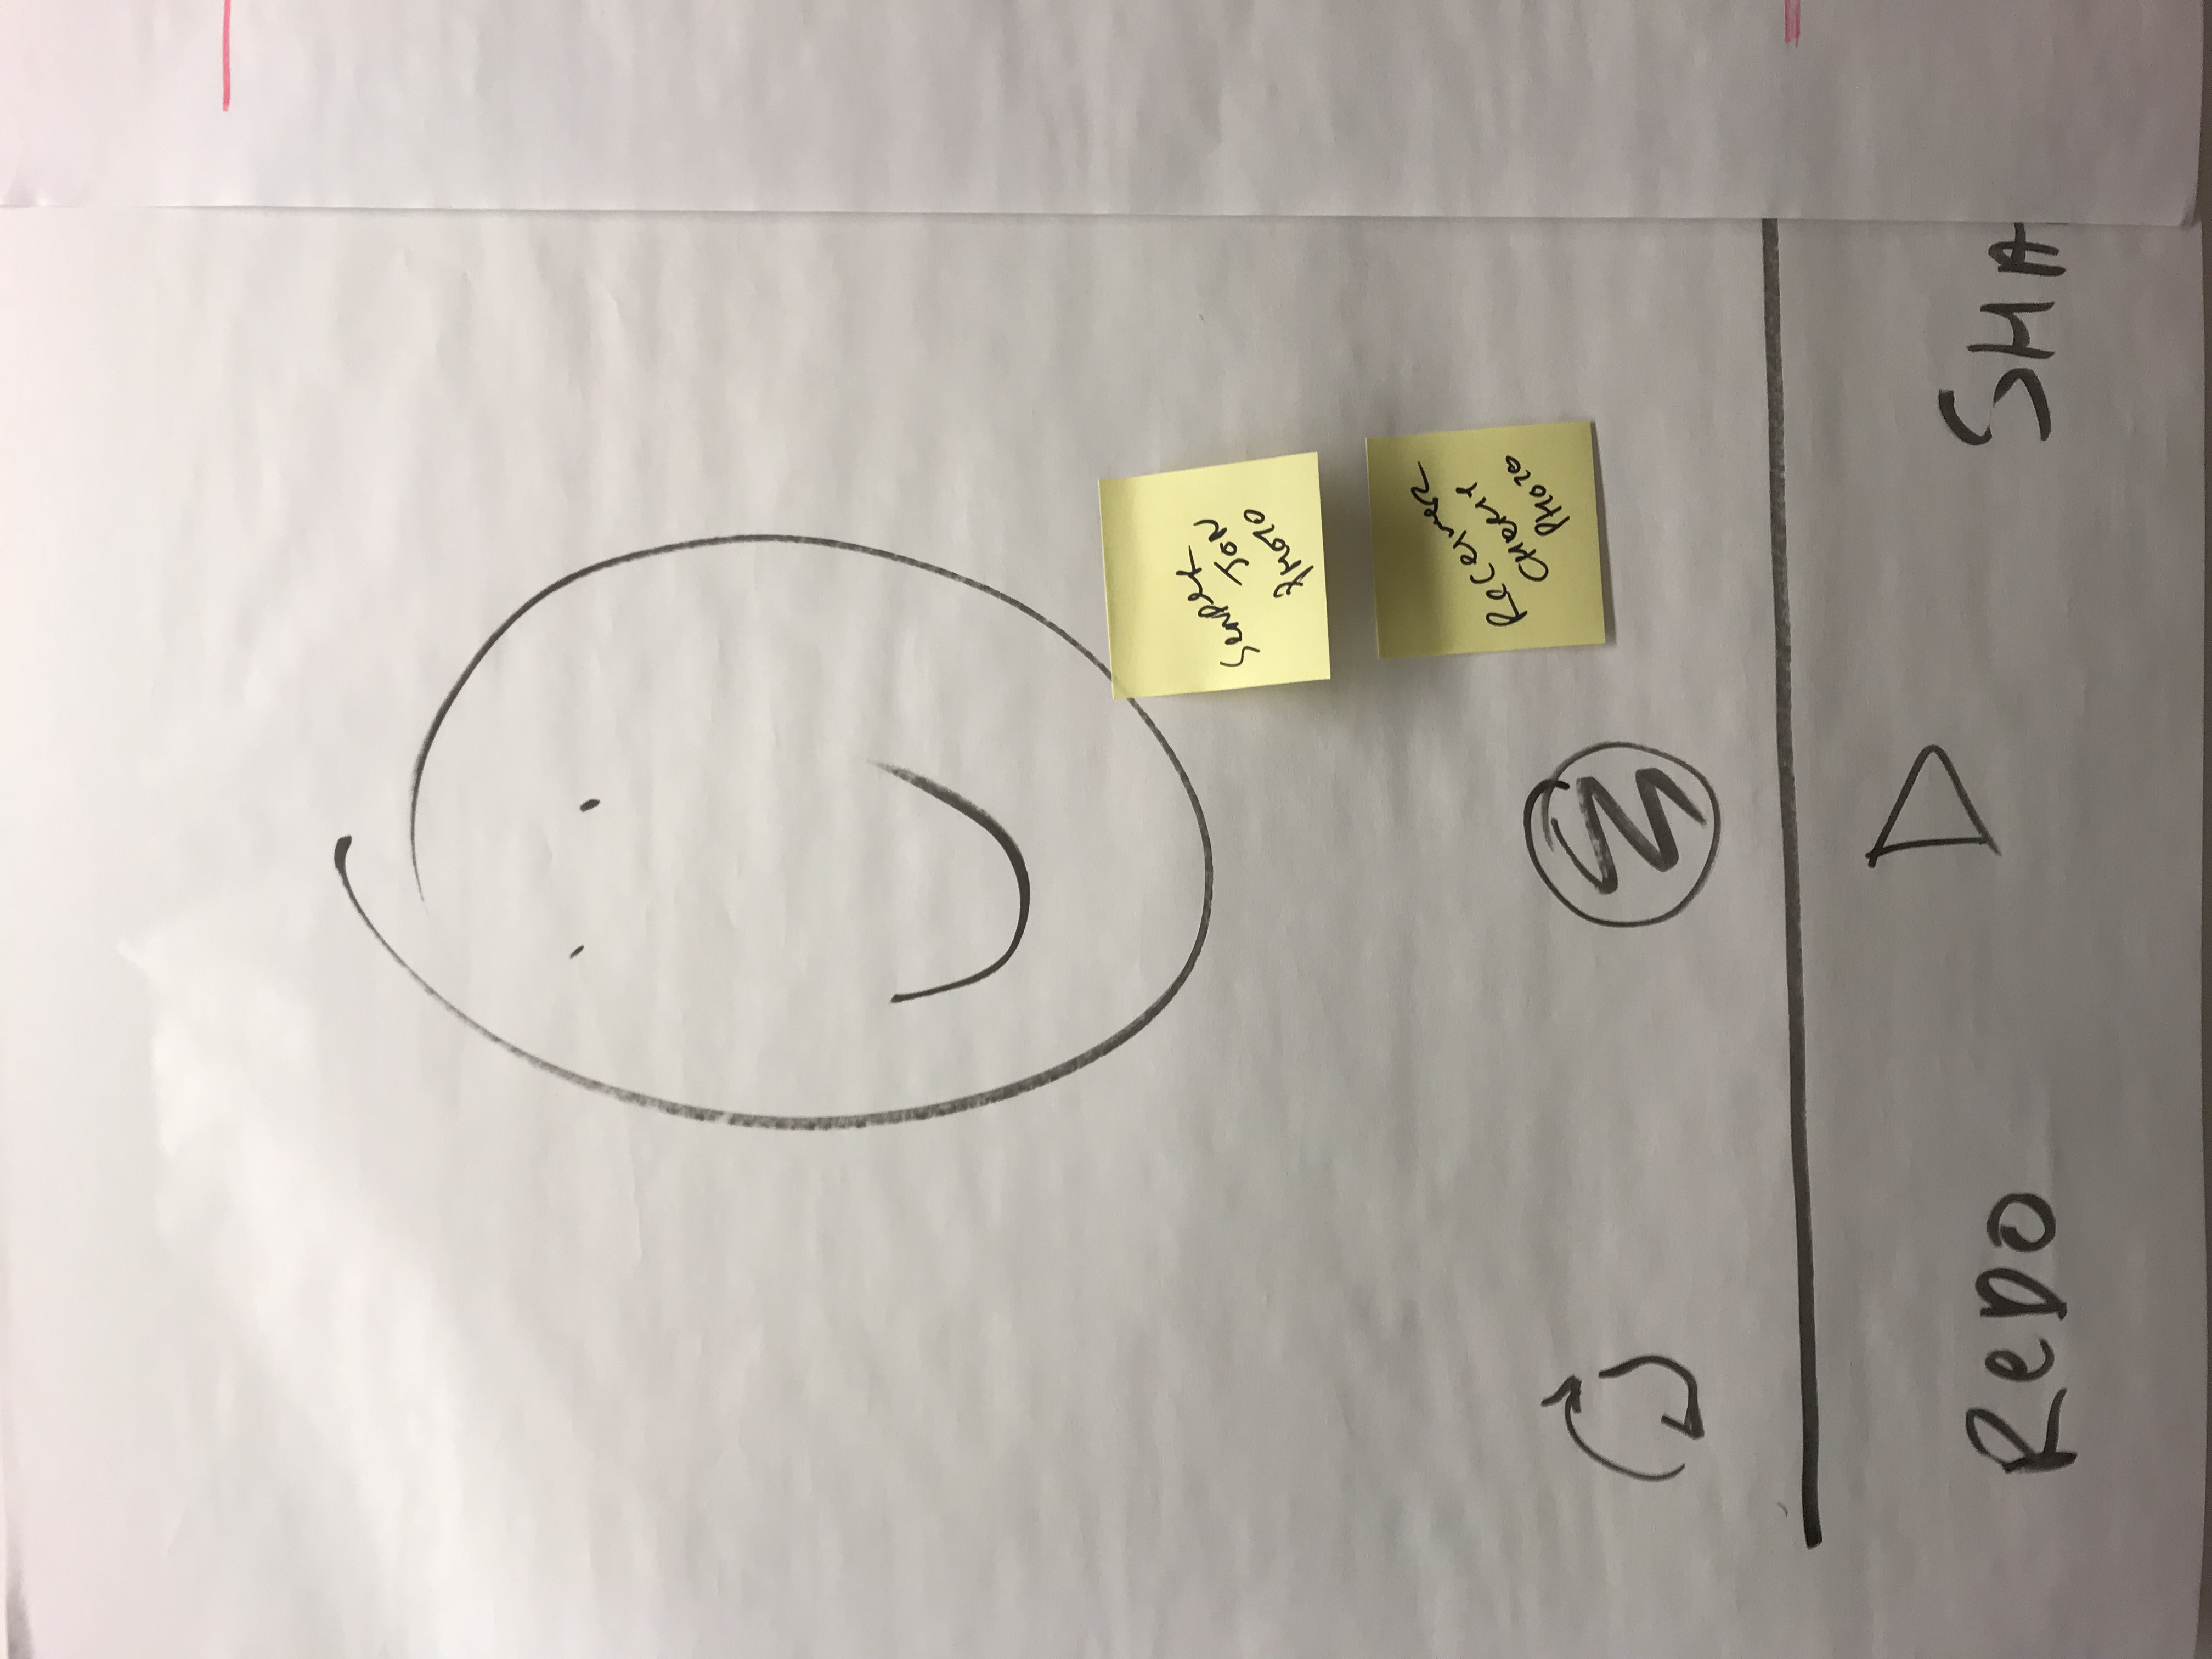 SENDER
JON
PHOTO
RECEIVER
PHOTO
REDO
SHA